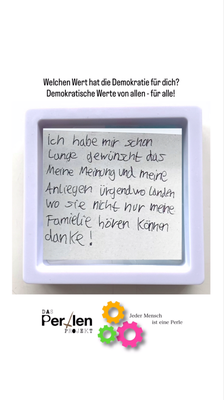 Welchen Wert hat die Demokratie für dich?
Demokratische Werte von allen - für alle!
Ich habe mir schon
Lange gewünscht das
Meine Meinung und meine
Anliegen ürgendwo landen
wo sie nicht nur meine
Famielie hören können
danke!
DAS
Perlen
PROJEKT
Jeder Mensch
ist eine Perle